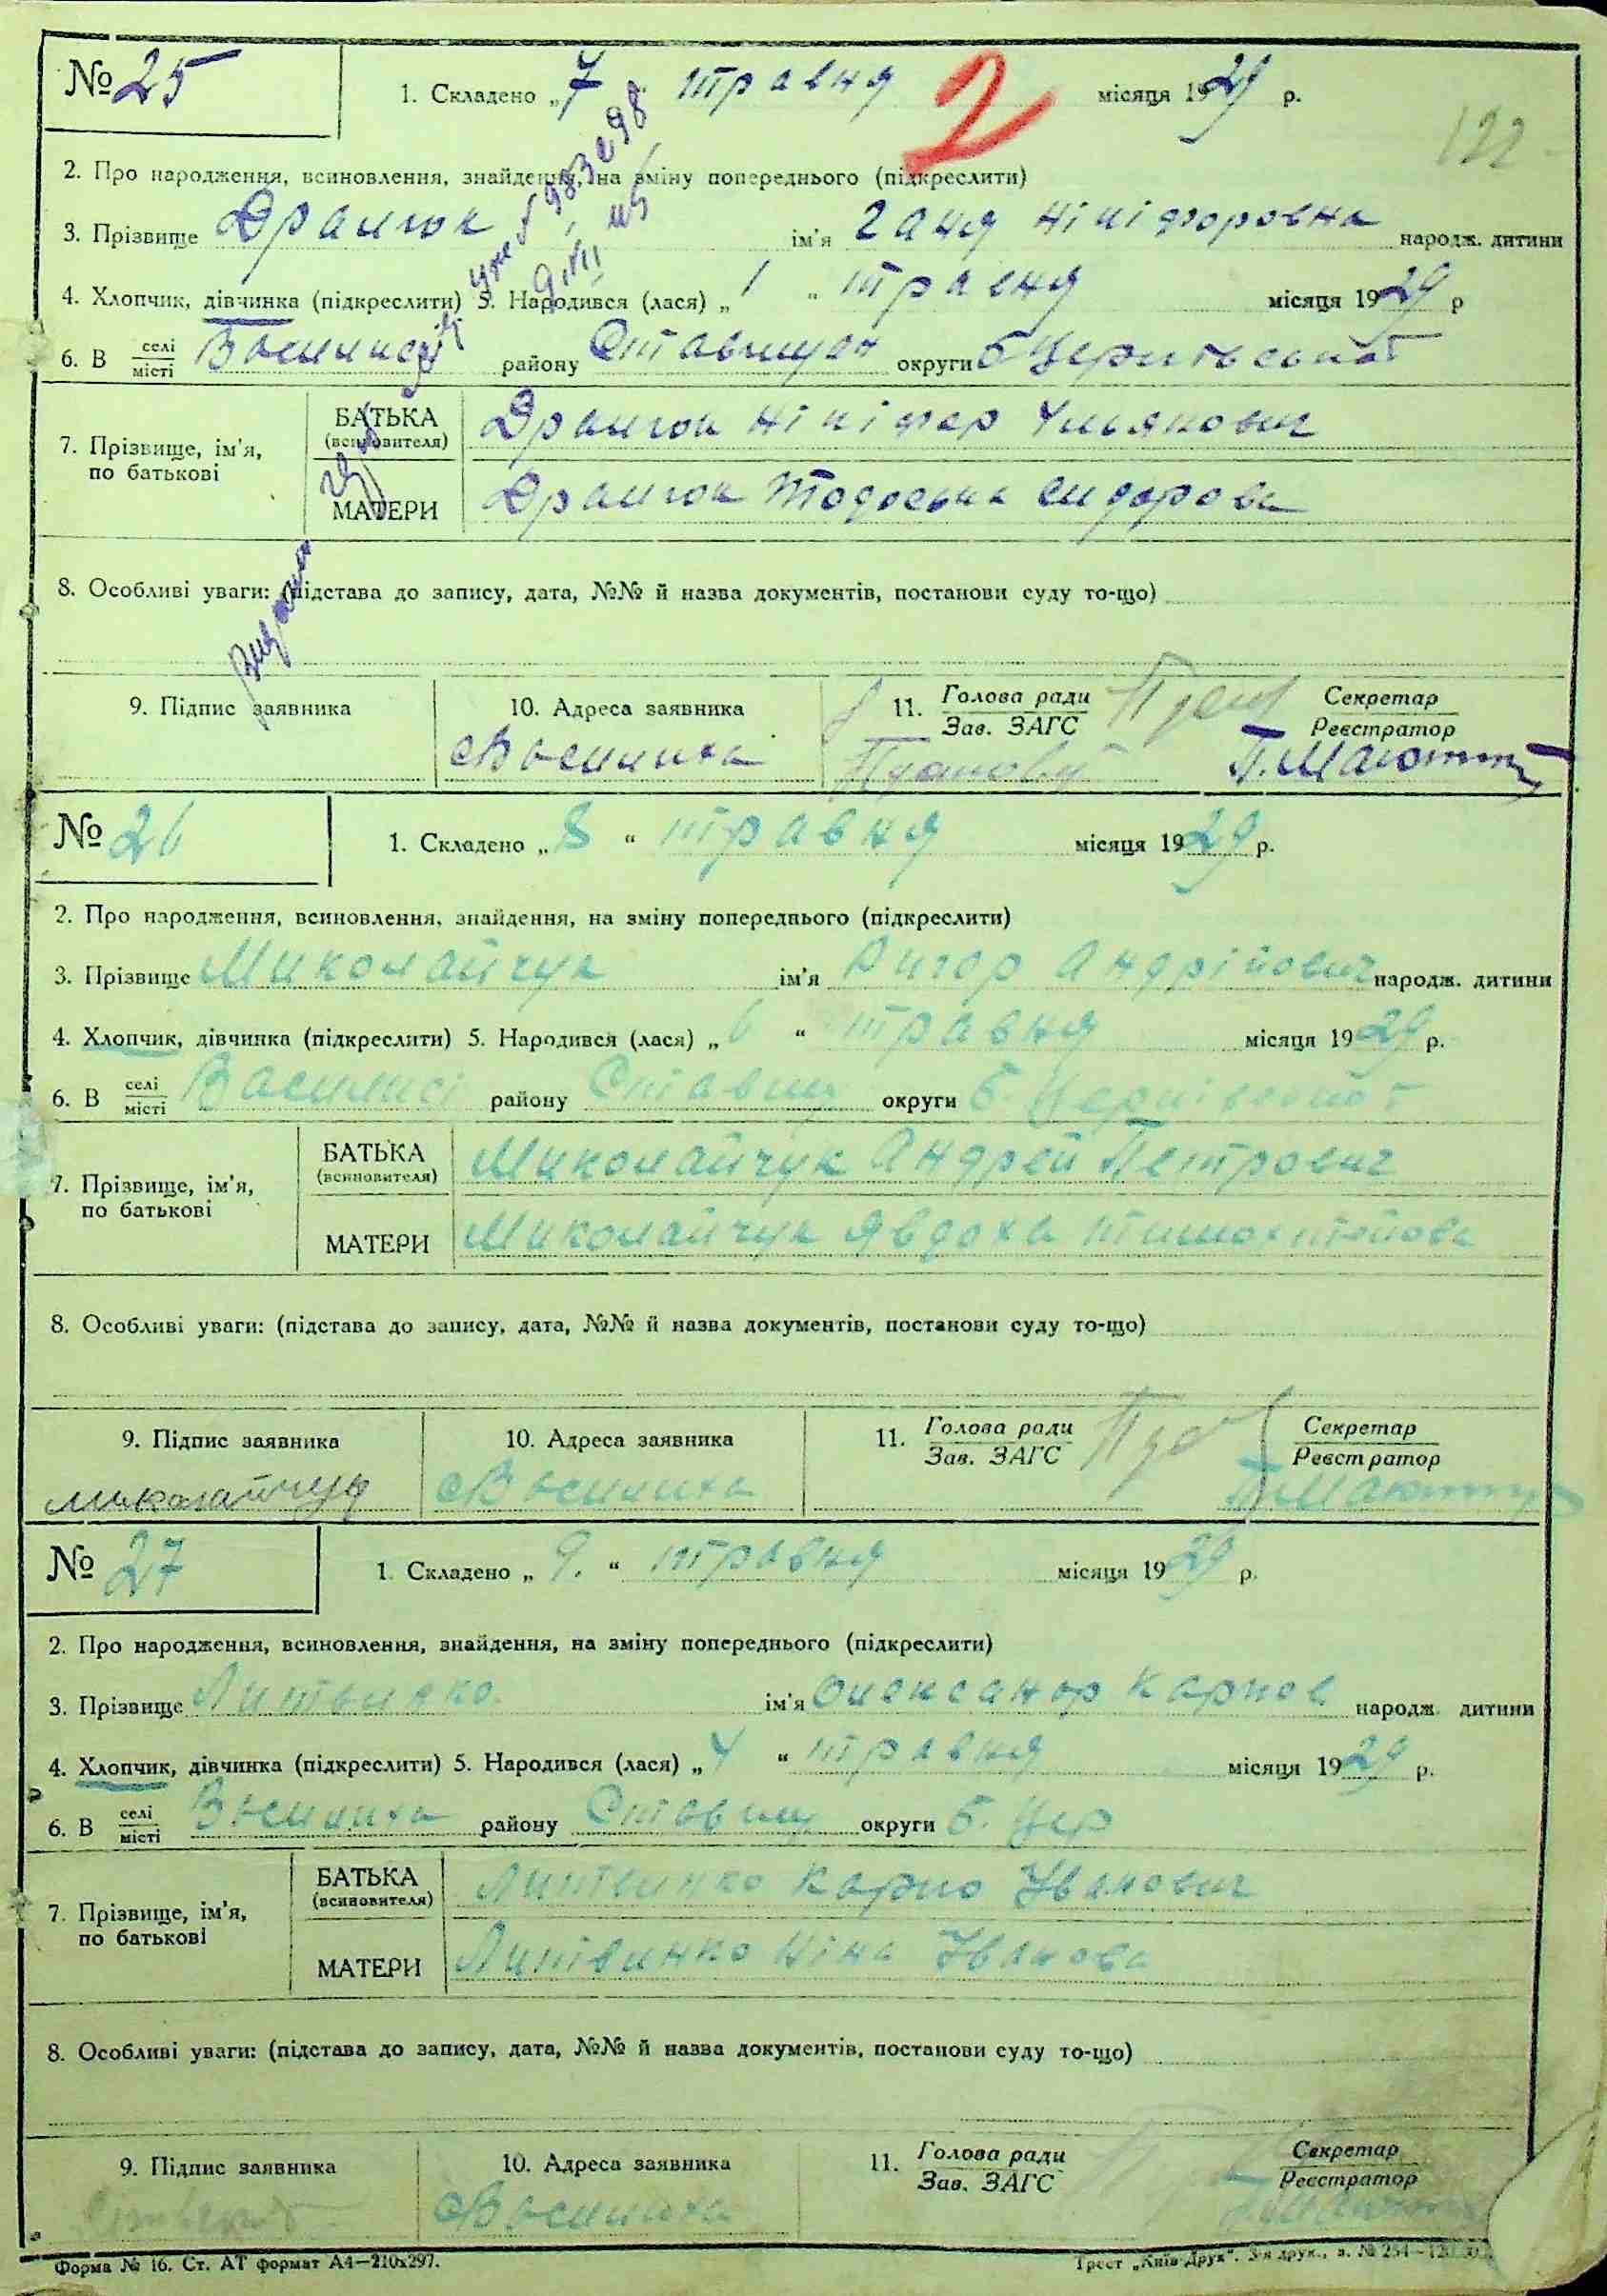 № 25
1. Складено „7" травня місяця 1929 р.
2
122
2. Про народження, всиновлення, знайдення, на зміну попереднього (підкреслити)
3. Прізвище Драмюк ім'я Ганя Нікіфоровна народж. дитини
4. Хлопчик, дівчинка (підкреслити) 5. Народився (лася) „1" травня місяця 1929 р
6. В селі місті Василисі району Ставищан округи Б Церківської
7. Прізвище, ім'я, по батькові
БАТЬКА (всиновителя) Драмюк Нікіфор Ульянович
МАТЕРИ Драмюк Тодоська Сидорова
8. Особливі уваги: (підстава до запису, дата, №№ й назва документів, постанови суду то-що)
9. Підпис заявника
10. Адреса заявника
с Василиха
11. Голова ради Зав. ЗАГС
Секретар Реєстратор
№ 26
1. Складено „8" травня місяця 1929 р.
2. Про народження, всиновлення, знайдення, на зміну попереднього (підкреслити)
3. Прізвище Миколайчук ім'я Андрійович народж. дитини
4. Хлопчик, дівчинка (підкреслити) 5. Народився (лася) „6" травня місяця 1929 р.
6. В селі місті Василисі району Ставищ округи Б. Церківської
7. Прізвище, ім'я, по батькові
БАТЬКА (всиновителя) Миколайчук Андрей Петрович
МАТЕРИ Миколайчук Явдоха
8. Особливі уваги: (підстава до запису, дата, №№ й назва документів, постанови суду то-що)
9. Підпис заявника
Миколайчук
10. Адреса заявника
с Василиха
11. Голова ради Зав. ЗАГС
Секретар Реєстратор
№ 27
1. Складено „9." травня місяця 1929 р.
2. Про народження, всиновлення, знайдення, на зміну попереднього (підкреслити)
3. Прізвище Литвинко ім'я Олександр Карпов народж. дитини
4. Хлопчик, дівчинка (підкреслити) 5. Народився (лася) „4" травня місяця 1929 р.
6. В селі місті Василиха району Ставищ округи Б. Цер
7. Прізвище, ім'я, по батькові
БАТЬКА (всиновителя) Литвинко Карпо Іванович
МАТЕРИ Литвинко Ніна Іванова
8. Особливі уваги: (підстава до запису, дата, №№ й назва документів, постанови суду то-що)
9. Підпис заявника
10. Адреса заявника
с Василиха
11. Голова ради Зав. ЗАГС
Секретар Реєстратор
Форма № 16. Ст. АТ формат А4—210х297.
Трест „Київ-Друк". 3-я друк., з. № 254